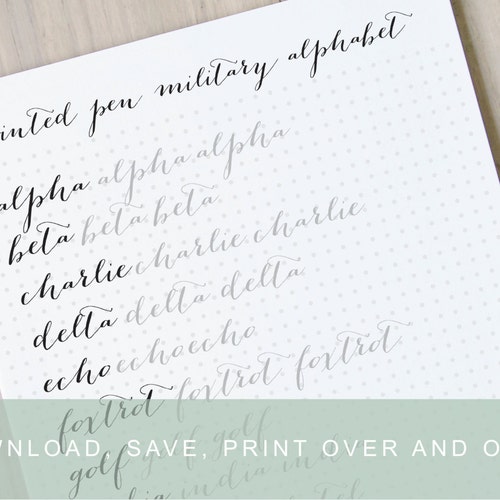 inted pen military alphabet
alpha alpha alpha
beta beta beta
charlie charlie charlie
delta delta delta
echo echo echo
foxtrot foxtrot foxtrot
WNLOAD, SAVE, PRINT OVER AND O
golf golf golf
india ind